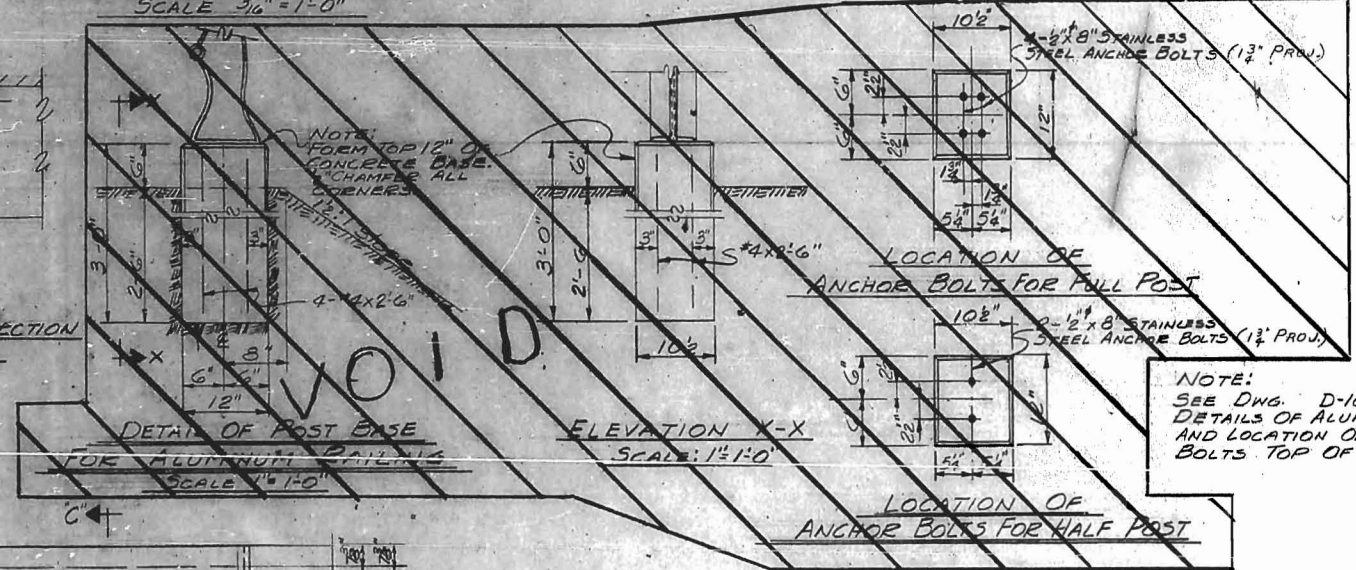 SCALE 3/16" = 1'-0"
NOTE:
FORM TOP 12" OF
CONCRETE BASE.
CHAMFER ALL
CORNERS
X
6"
3'-0"
2'-6"
3"
3"
4-#4x2'-6"
X
8"
6"
6"
12"
DETAIL OF POST BASE
FOR ALUMINUM RAILING
SCALE 1" = 1'-0"
VOID
6"
3'-0"
2'-6"
3"
3"
#4x2'-6"
10½"
ELEVATION X-X
SCALE: 1"=1'-0"
10½"
4-½"ø x 8" STAINLESS
STEEL ANCHOR BOLTS (1¾" PROJ.)
6"
6"
2½"
2½"
12"
1¾"
1¾"
5¼"
5¼"
LOCATION OF
ANCHOR BOLTS FOR FULL POST
10½"
2-½"ø x 8" STAINLESS
STEEL ANCHOR BOLTS (1¾" PROJ.)
6"
6"
2½"
2½"
12"
5¼"
5¼"
LOCATION OF
ANCHOR BOLTS FOR HALF POST
NOTE:
SEE DWG. D-10
DETAILS OF ALUM
AND LOCATION OF
BOLTS TOP OF
ECTION
"C"